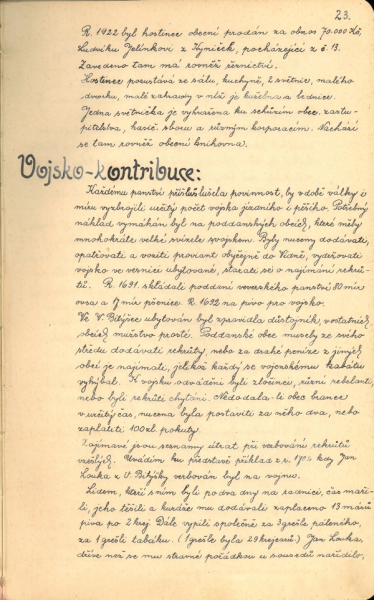 23.
R. 1922 byl hostinec obecní prodán za obnos 70.000 Kč,
Ludvíku Jelínkovi z Hyniček, pocházející z č. 13.
Zavedeno tam má rovněž řeznictví.
Hostinec pozustává ze sálu, kuchyně, 2 světnic, malého
dvorku, malé zahrady v níž je kuželna a lednice.
Jedna světnička je vyhražena ku schůzím obec. zastu-
pitelstva, hasič. sboru a různým korporacím. Nachází
se tam rovněž obecní knihovna.
Vojsko-kontribuce:
Každému panství příslušela povinnost, by v době války i
míru vyzbrojil určitý počet vojska jízdního i pěšího. Potřebný
náklad vymáhán byl na poddanských obcích, které měly
mnohokráte velké svízele s vojskem. Byly nuceny dodávati,
opatřovati a voziti proviant obyčejně do Vídně, vydržovati
vojsko ve vesnici ubytované, starati se o najímání rekru-
tů. R. 1691. skládali poddaní veverského panství 80 mír
ovsa a 17 mír pšenice. R. 1692 na pivo pro vojsko.
Ve V. Bitýšce ubytován byl zpravidla důstojník, v ostatních
obcích mužstvo prosté. Poddanské obce musely ze svého
středu dodávati rekruty, nebo za drahé peníze z jiných
obcí je najímali, jelikož každý se vojenskému kabátu
vyhýbal. K vojsku odváděni byli zločinci, různí rebelanti,
nebo byli rekruti chytáni. Nedodala-li obec brance
v určitý čas, nucena byla postaviti za něho dva, nebo
zaplatiti 100 zl. pokuty.
Zajímavé jsou seznamy útrat při verbování rekrutů
vzešlých. Uvádím ku představě příklad z r. kdy Jan
Louka z V. Bitýšky verbován byl na vojnu.
Lidem, kteří s ním byli po dva dny na radnici, čas maři-
li, jeho těšili a kuráže mu dodávali zaplaceno 13 mázů
piva po 2 krej. Dále vypili společně za 3 grešle páleného,
za 1 grešli tabáku. (1 grešle byla krejcarů.) Jan Louka,
dříve než se mu stravné pořádkou u sousedů nařídilo,